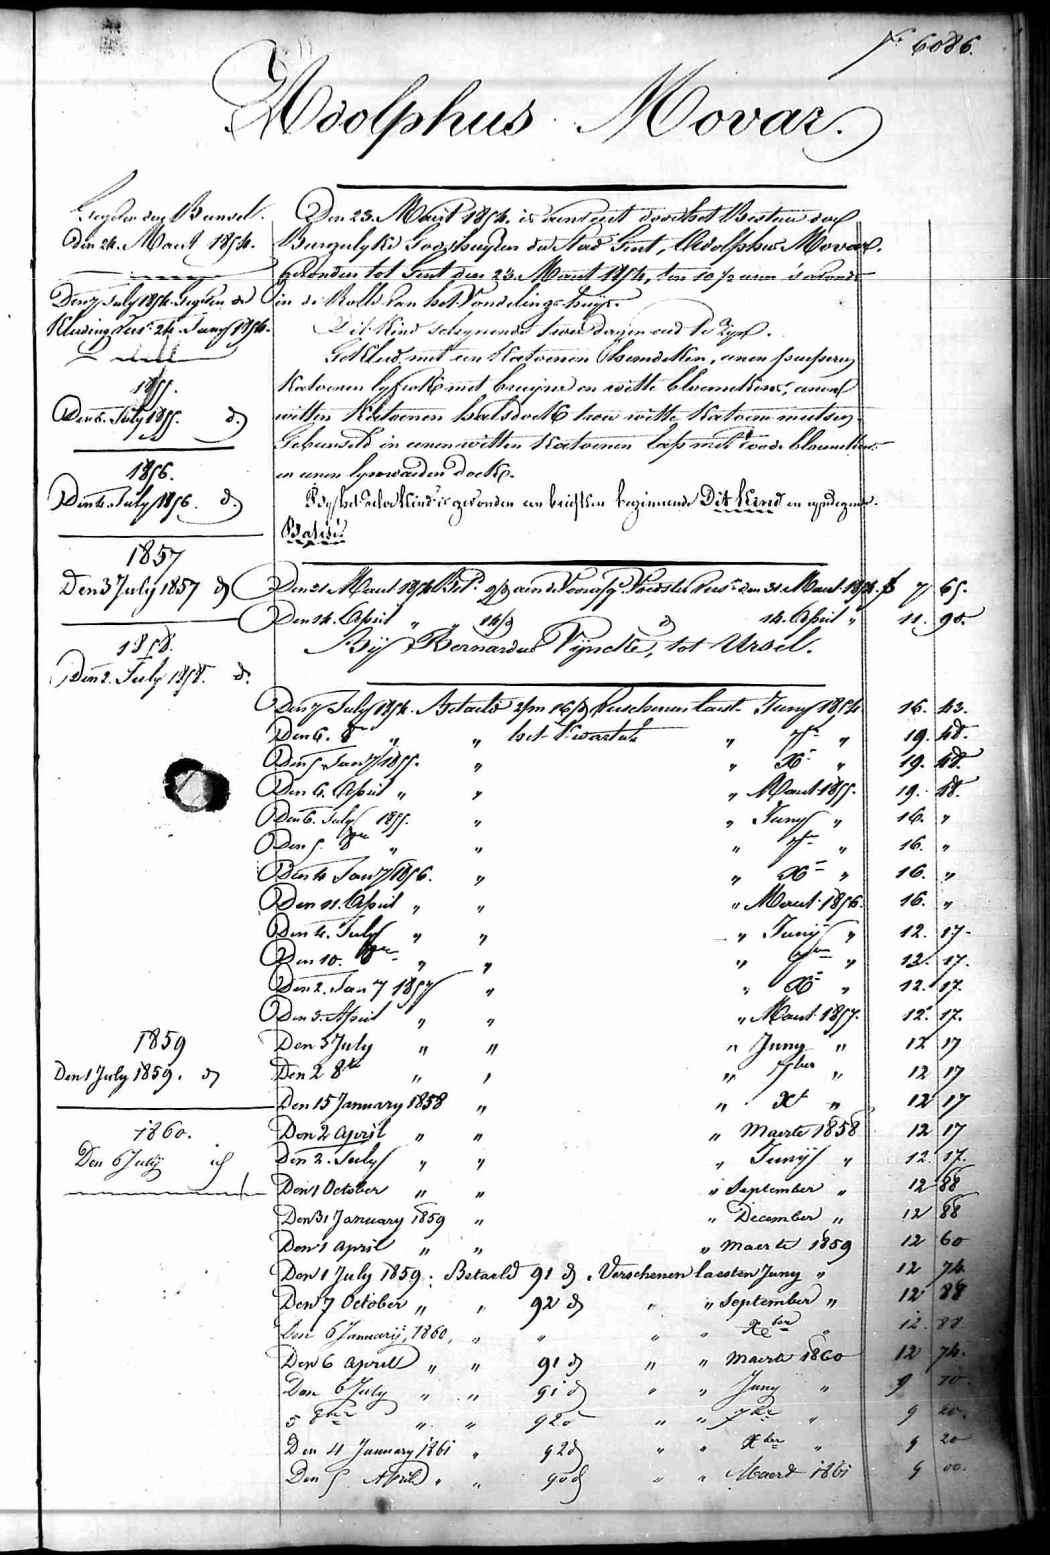 N° 6086.
Adolphus Movar.
Den 24. Maert 1854.
Den 7 July 1854. d
Kleeding 24. Juny 1854.
1855.
Den 6. July 1855. d.
1856.
Den 4. July 1856. d.
1857
Den 3 July 1857 d
1858.
Den 2. July 1858. d.
1859
Den 1 July 1859. d
1860.
Den 6 July id
Den 23. Maert 1854. is door het Bestuer der
Burgelyke Godshuyzen der Stad Gent, Adolphus Movar.
gevonden tot Gent den 23. Maert 1854, ten 10 ½ uren s'avonds
in de Rolle van het Vondelinge huys.
Dit Kind schynende twee dagen oud te zyn.
Gekleed met een Katoenen hemdeken, eenen
Katoenen lyfrok met bruyne en witte bloemekens, eenen
witten Katoenen halsdoek twee witte Katoene mutsen
in eenen witten Katoenen met roode bloemekens
en eenen lynwaeden doek.
By het zelve Kind is gevonden een briefken beginnende Dit Kind en eyndigende
Den 31 Maert 1854 den 31 Maert 1854. f 7 65.
Den 14. April " " 14/d d 14. April " 11. 90.
Bij Bernardus Vyncke, tot Ursel.
Den 7 July 1854. Betaeld Verschenen laest Juny 1854 16. 43.
Den 6. 8re " " het Kwartael " 7re " 19. 48.
Den 5. Jany 1855. " " Xre " 19. 48.
Den 6. April " " " Maert 1855. 19. 48.
Den 6. July 1855. " " Juny " 16. "
Den 5. 8re " " " 7re " 16. "
Den 4 Jany 1856. " " Xre " 16. "
Den 11. April " " " Maert 1856. 16. "
Den 4. July " " " Juny " 12. 17.
Den 10. 8re " " " 7re " 12. 17.
Den 2. Jany 1857 " " Xre " 12. 17.
Den 3. April " " " Maert 1857. 12. 17.
Den 3 July " " " Juny " 12 17
Den 2 8re " " " 7ber " 12 17
Den 15 January 1858 " " Xr " 12 17
Den 2 April " " " Maerte 1858 12 17
Den 2. July " " " Juny " 12 17.
Den 1 October " " " September " 12 88
Den 31 January 1859 " " December " 12 88
Den 1 April " " " Maerte 1859 12 60
Den 1 July 1859. Betaeld 91 d. Verschenen laesten Juny " 12 74
Den 7 October " " 92 d " " September " 12 88
Den 6 January 1860, " " " " Xber " 12 88
Den 6 April " " 91 d " " Maerte 1860 12 74.
Den 6 July " " 91 d " " Juny " 9 10.
5 8ber " " 92 d " " 7ber " 9 20.
Den 4 January 1861 " 92 d " " Xber " 9 20
Den 5 April " " 90 d " " Maert 1861 9 00.